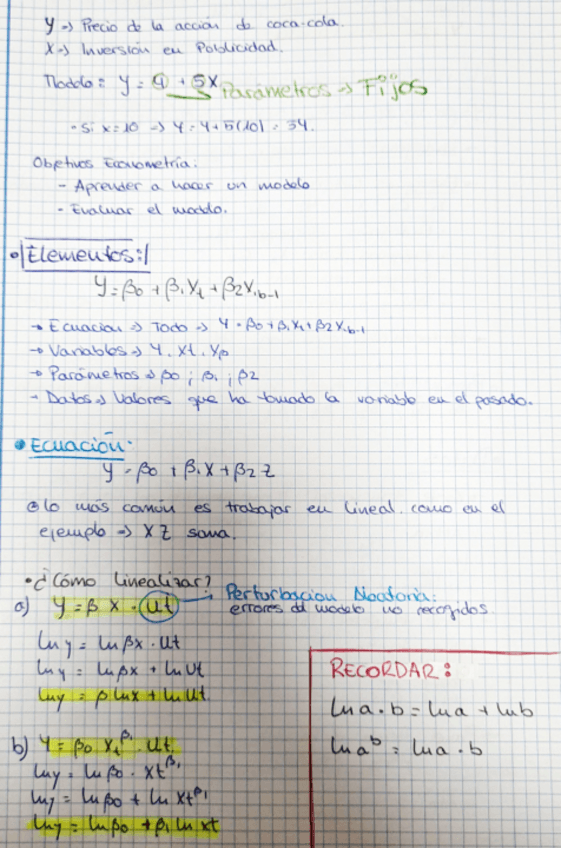 Y → Precio de la acción de coca-cola.
X → Inversión en Publicidad.
Modelo: Y = 4 + 5X Parámetros → Fijos
- Si x=10 → Y = 4+5(10) = 54.
Objetivos Econometría:
- Aprender a hacer un modelo
- Evaluar el modelo.
• Elementos:
Y = β0 + β1 Xt + β2 X,b-1
→ Ecuación → Todo → Y = β0 + β1 X1 + β2 X,b-1
→ Variables → Y, Xt, Xp
→ Parámetros → β0 ; β1 ; β2
→ Datos → Valores que ha tomado la variable en el pasado.
• Ecuación:
Y = β0 + β1 X + β2 Z
lo más común es trabajar en lineal. como en el
ejemplo → X Z suma.
• ¿Cómo linealizar?
a) Y = β X · Ut → Perturbacion Aleatoria:
errores del modelo no recogidos.
ln y = ln βx · Ut
ln y = ln βx + ln Ut
ln y = β ln x + ln Ut.
b) Y = β0 Xt^β1 · Ut.
ln y = ln β0 · Xt^β1
ln y = ln β0 + ln Xt^β1
ln y = ln β0 + β1 ln xt
RECORDAR:
ln a · b = ln a + ln b
ln a^b = ln a · b